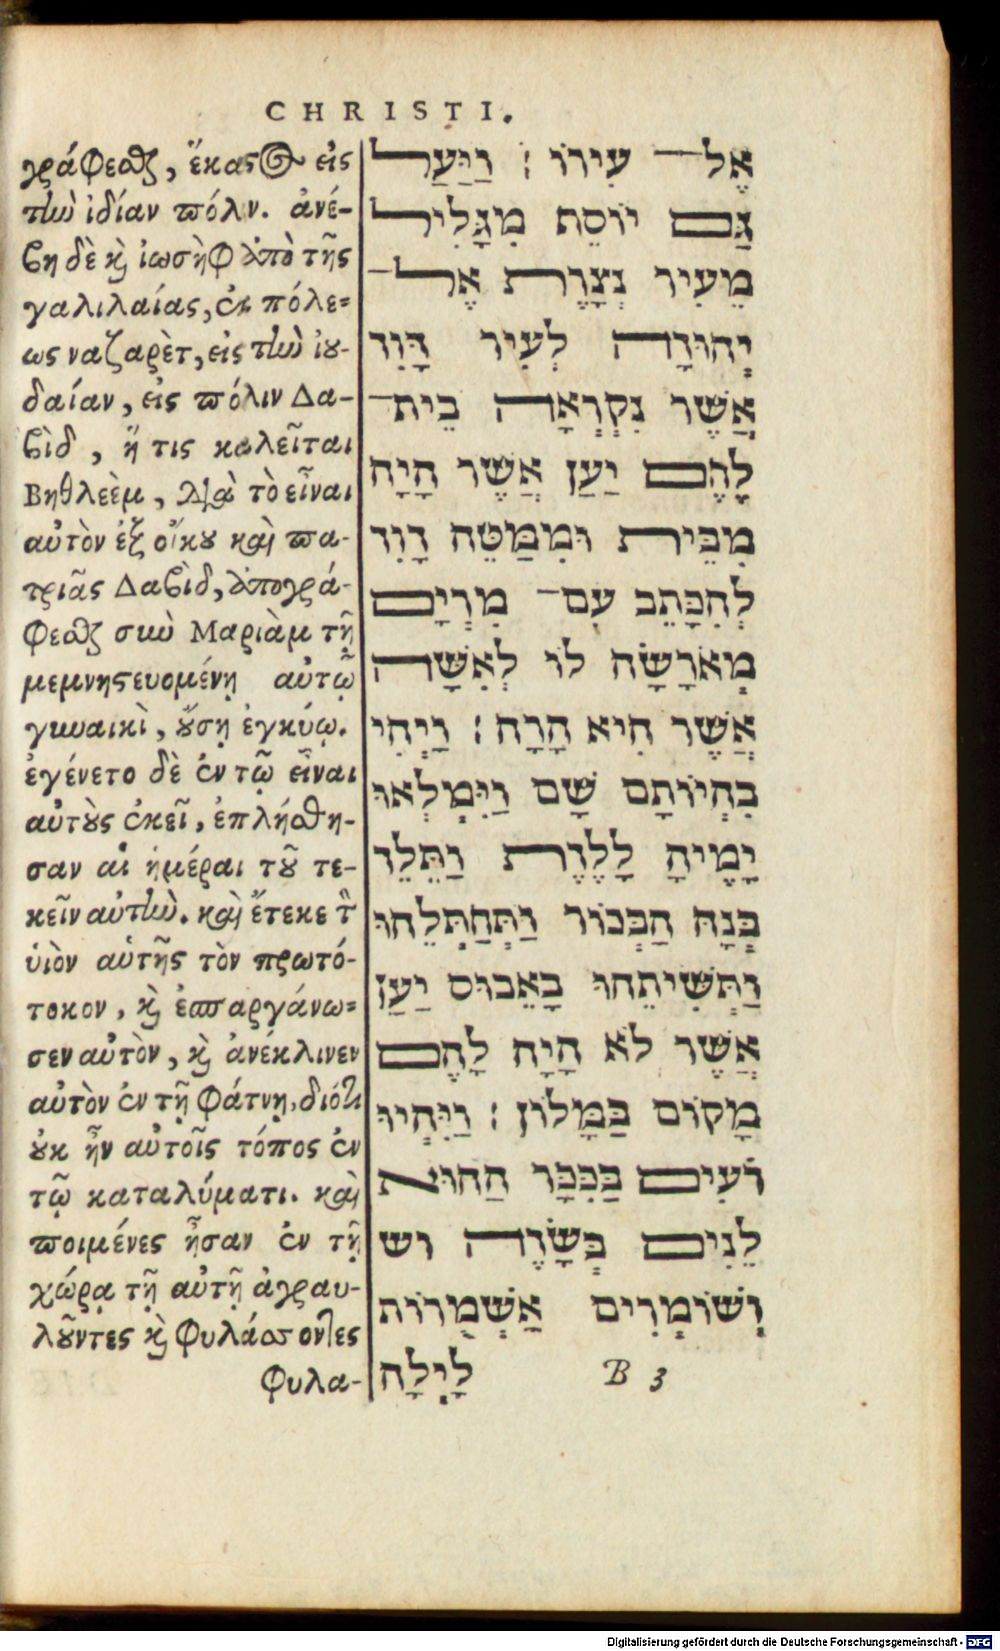 CHRISTI.
γράφεσθαι, ἕκαστος εἰς
τὴν ἰδίαν πόλιν. ἀνέ-
βη δὲ καὶ ἰωσὴφ ἀπὸ τῆς
γαλιλαίας, ἐκ πόλε-
ως ναζαρὲτ, εἰς τὴν ἰου-
δαίαν, εἰς πόλιν Δα-
βὶδ, ἥ τις καλεῖται
Βηθλεὲμ, διὰ τὸ εἶναι
αὐτὸν ἐξ οἴκου καὶ πα-
τριᾶς Δαβὶδ, ἀπογρά-
φεσθαι σὺν Μαριὰμ τῇ
μεμνηστευομένῃ αὐτῷ
γυναικὶ, οὔσῃ ἐγκύῳ.
ἐγένετο δὲ ἐν τῷ εἶναι
αὐτοὺς ἐκεῖ, ἐπλήσθη-
σαν αἱ ἡμέραι τοῦ τε-
κεῖν αὐτὴν. καὶ ἔτεκε τὸν
ὑιὸν αὑτῆς τὸν πρωτό-
τοκον, καὶ ἐσπαργάνω-
σεν αὐτὸν, καὶ ἀνέκλινεν
αὐτὸν ἐν τῇ φάτνῃ, διότι
οὐκ ἦν αὐτοῖς τόπος ἐν
τῷ καταλύματι. καὶ
ποιμένες ἦσαν ἐν τῇ
χώρᾳ τῇ αὐτῇ ἀγραυ-
λοῦντες καὶ φυλάσσοντες
φυλα-
אֶל־ עִירוֹ : וַיַּעַל
גַּם יוֹסֵף מִגָּלִיל
מֵעִיר נְצָרֶת אֶל־
יְהוּדָה לְעִיר דָּוִד
אֲשֶׁר נִקְרְאָה בֵית־
לָהֶם יַעַן אֲשֶׁר הָיָה
מִבֵּית וּמִמַּטֵּה דָוִד
לְהִכָּתֵב עִם־ מִרְיָם
מְאֹרָשָׂה לוֹ לְאִשָּׁה
אֲשֶׁר הִיא הָרָה : וַיְהִי
בִּהְיוֹתָם שָׁם וַיִּמְלְאוּ
יָמֶיהָ לָלֶדֶת וַתֵּלֶד
בְּנָהּ הַבְּכוֹר וַתְּחַתְּלֵהוּ
וַתְּשִׁיתֵהוּ בָאֵבוּס יַעַן
אֲשֶׁר לֹא הָיָה לָהֶם
מָקוֹם בַּמָּלוֹן : וַיִּהְיוּ
רֹעִים בַּכִּכָּר הַהוּא
לֵנִים בְּשָׂדֶה וש
וְשׁוֹמְרִים אַשְׁמֻרוֹת
לָיְלָה
B 3
Digitalisierung gefördert durch die Deutsche Forschungsgemeinschaft - DFG